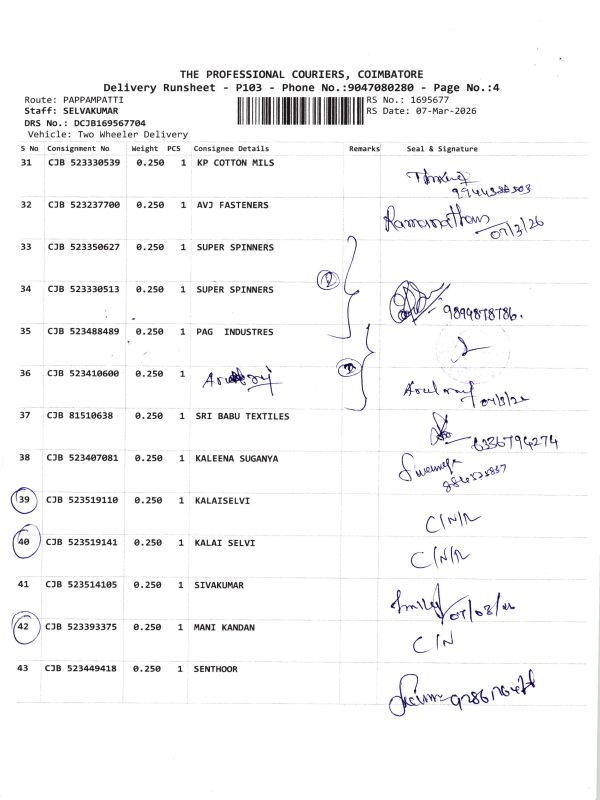 THE PROFESSIONAL COURIERS, COIMBATORE
Delivery Runsheet - P103 - Phone No.:9047080280 - Page No.:4
Route: PAPPAMPATTI
RS No.: 1695677
Staff: SELVAKUMAR
RS Date: 07-Mar-2026
DRS No.: DCJB169567704
Vehicle: Two Wheeler Delivery
S No Consignment No Weight PCS Consignee Details Remarks Seal & Signature
31 CJB 523330539 0.250 1 KP COTTON MILS
32 CJB 523237700 0.250 1 AVJ FASTENERS Ramanathan
07/3/26
33 CJB 523350627 0.250 1 SUPER SPINNERS
34 CJB 523330513 0.250 1 SUPER SPINNERS 9894878786.
35 CJB 523488489 0.250 1 PAG INDUSTRES
36 CJB 523410600 0.250 1
37 CJB 81510638 0.250 1 SRI BABU TEXTILES 6336794274
38 CJB 523407081 0.250 1 KALEENA SUGANYA
39 CJB 523519110 0.250 1 KALAISELVI C/N/R
40 CJB 523519141 0.250 1 KALAI SELVI C/N/R
41 CJB 523514105 0.250 1 SIVAKUMAR
42 CJB 523393375 0.250 1 MANI KANDAN C/N
43 CJB 523449418 0.250 1 SENTHOOR